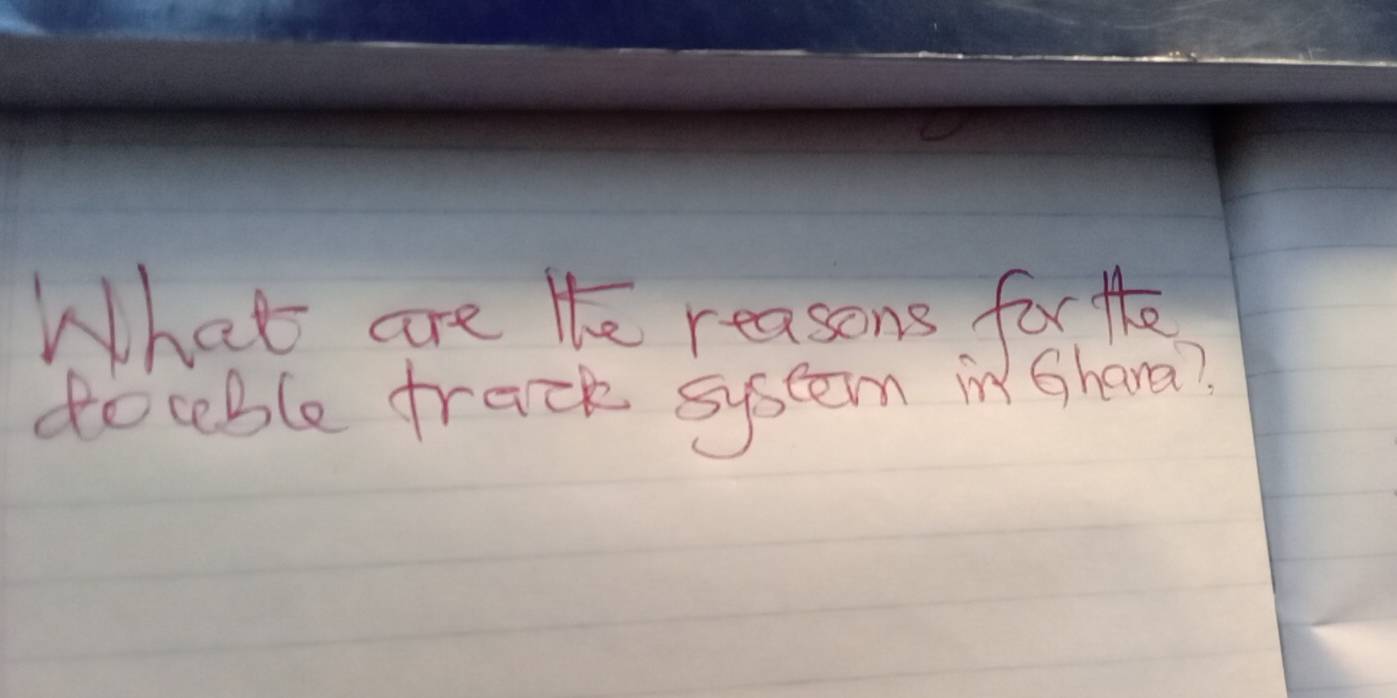 What are the reasons for the
double track system in Ghana?